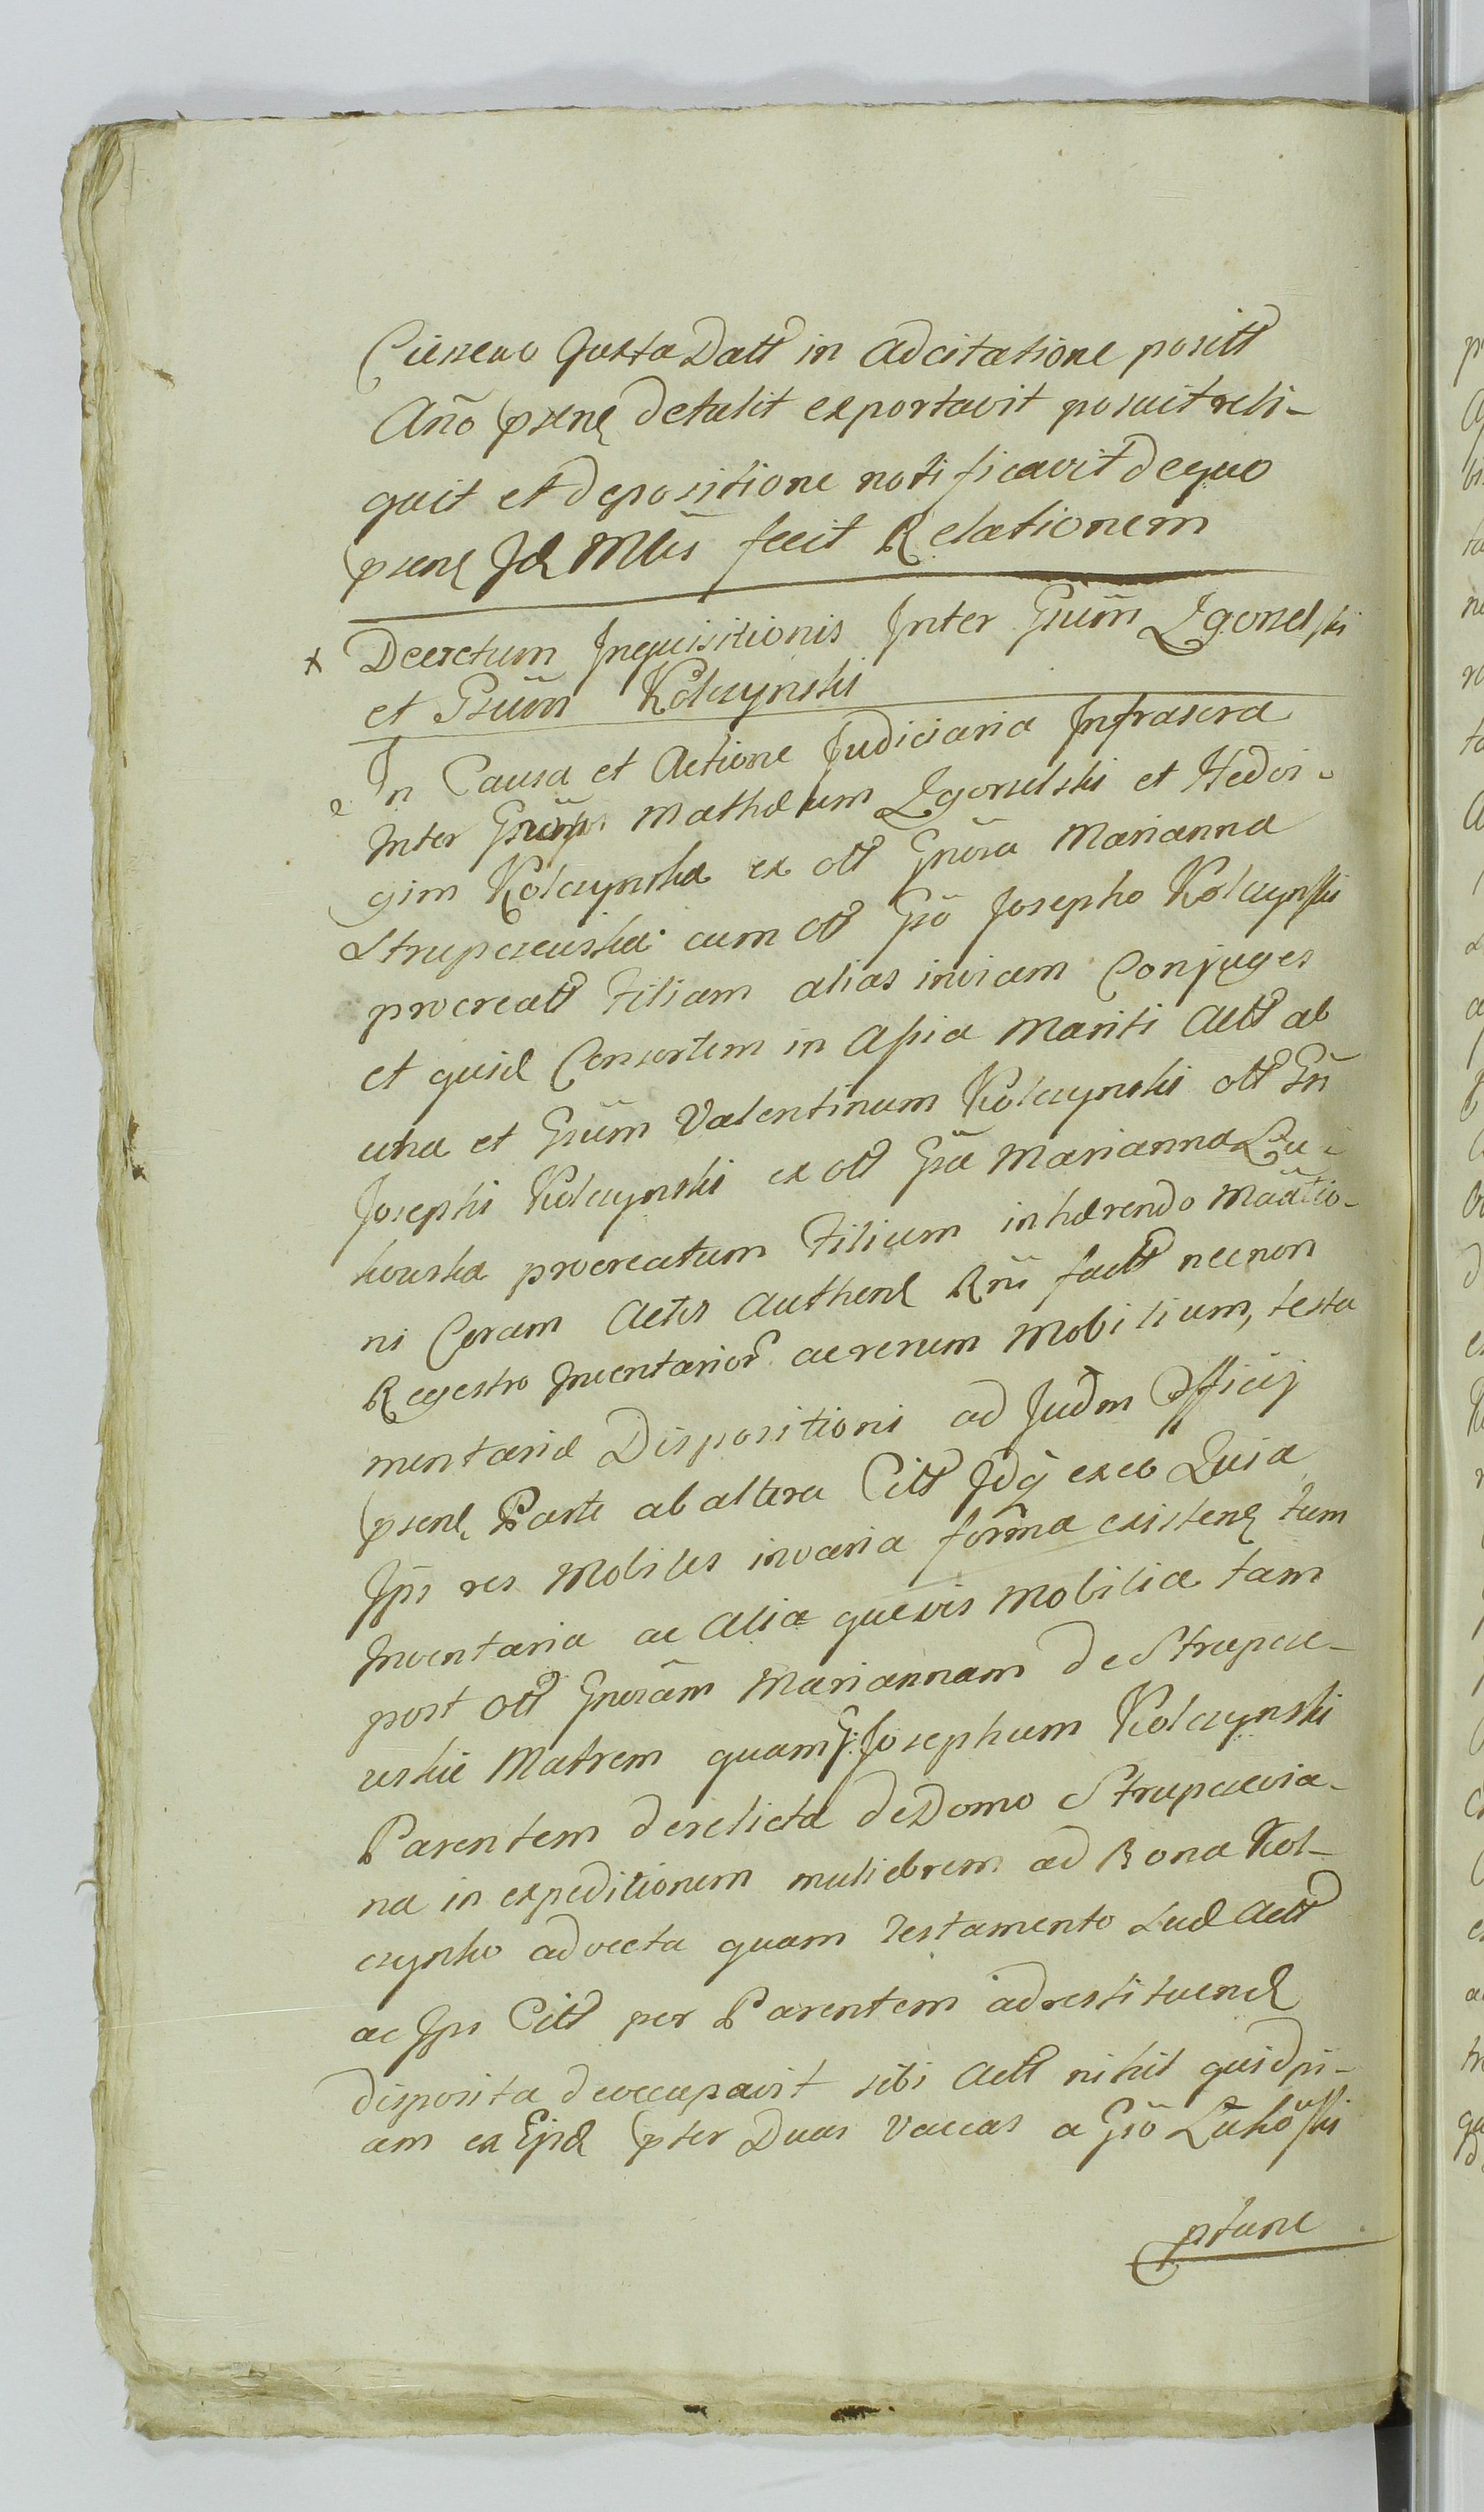 Cieszewo Juxta Datt in adcitatione positt
Año psenε detulit exportavit posuit reli-
quit et depositione notificavit de quo
psens Id Mlis fecit Relationem
x Decretum Inquisitionis Inter Gsum̃ Zgorzelski
et Gsum̃ Kolczynski
In Causa et Actione Judiciaria Infrascra
Inter Mathæum Zgorzelski et Hedvi-
gim Kolczynska ex ott Gnõsa Marianna
Strupczewska cum ott Gsõ Josepho Kolczynski
procreatt Filiam alias invicem Conjuges
et quid Consortem in Assia Mariti Actt ab
una et Gsum̃ Valentinum Kolczynski ott Gñ
Josephi Kolczynski ex ott Gsã Marianna Lu-
kowska procreatum Filium inhærendo Maãtio-
ni Coram Actis Authenε Rñi factt necnon
Regestro Inventarior ac rerum Mobilium, testa
mentariæ Dispositioni ad Judm Officij
psenε Parte ab altera Citt Idq ex eo Quia
Ips res Mobiles in varia forma existenε tum
Inventaria ac alia quævis Mobilia tam
post ott Gnosãm Mariannam de Strupcze-
wskie Matrem quam G: Josephum Kolczynski
Parentem derelicta de Domo Strupczevia-
na in expeditionem muliebrem ad Bona Kol-
czynko advecta quam Testamento Actt
ac Ips Citt per Parentem ad restituend
disposita deoccupavit sibi Actt nihil quidpi-
am ex Ejsd pter Duas Vaccas a Gsõ Lukowski